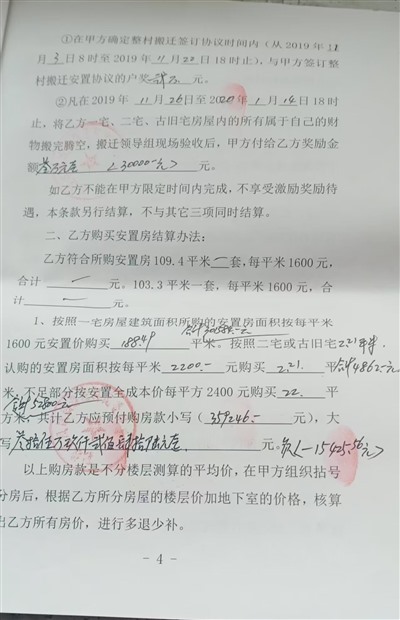 ①在甲方确定整村搬迁签订协议时间内（从2019年11
月3日8时至2019年11月22日18时止），与甲方签订整
村搬迁安置协议的户奖 元。
②凡在2019年11月26日至2020年1月14日18时
止，将乙方一宅、二宅、古旧宅房屋内的所有属于自己的财
物搬完腾空，搬迁领导组现场验收后，甲方付给乙方奖励金
额叁万元整（30000元）元。
如乙方不能在甲方限定时间内完成，不享受激励奖励待
遇，本条款另行结算，不与其它三项同时结算。
二、乙方购买安置房结算办法：
乙方符合所购安置房109.4平米二套，每平米1600元，
合计 元。103.3平米一套，每平米1600元，合
计 元。
1、按照一宅房屋建筑面积所购的安置房面积按每平米
1600元安置价购买188.49平米。按照二宅或古旧宅2.21平米
认购的安置房面积按每平米2200元购买2.21平合计4862元
米，不足部分按安置全成本价每平方2400元购买22平
合计52800元
方米，共计乙方应预付购房款小写（359246元），大
写 元。负（-15425.56元）
以上购房款是不分楼层测算的平均价，在甲方组织拈号
分房后，根据乙方所分房屋的楼层价加地下室的价格，核算
出乙方所有房价，进行多退少补。
- 4 -